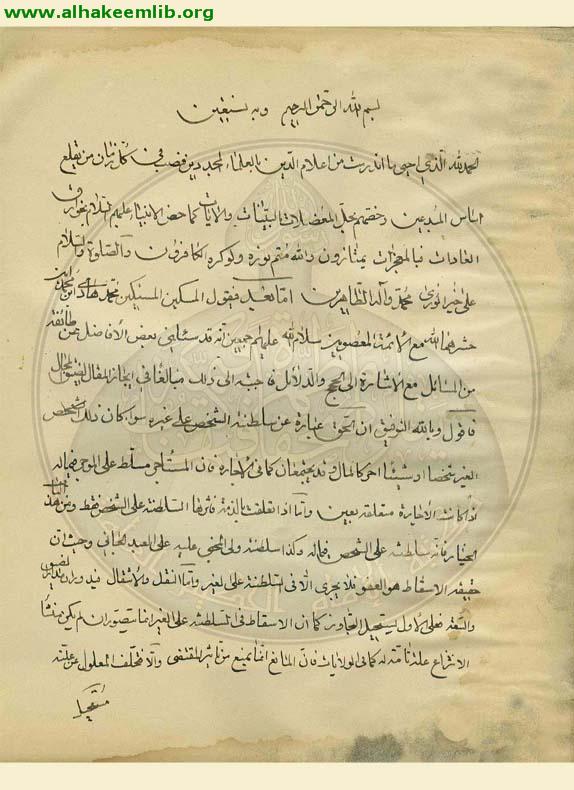 www.alhakeemlib.org
بسم الله الرحمن الرحيم وبه نستعين
الحمد لله الذي احيى ما اندرست من اعلام الدين بالعلماء المجددين فصب في كل زمان من يقلع
اساس المبدعين وخصهم بحل المعضلات البينات والايات كما خص الانبياء عليهم السلام بخوارق
العادات فبالمعجزات يمتازون والله متم نوره ولو كره الكافرون والصلوة والسلام
على خير الورى محمد وآله الطاهرين اما بعد فيقول المسكين المستكين محمد هادي ابن
حشرهما الله مع الائمة المعصومين سلام الله عليهم اجمعين انه قد سئلني بعض الافاضل عن طائفة
من المسائل مع الاشارة الى الحجج والدلائل فاجبته الى ذلك مبالغا في ايجاز المقال لضيق المجال
فاقول وبالله التوفيق ان الحق عبارة عن سلطنة الشخص على غيره سواء كان ذلك
الغير شخصا او شيئا اخر كالمال وقد يجتمعان كما في الاجارة فان المستاجر مسلط على الموجر في ماله
اذا كانت الاجارة متعلقة بعين واما اذا تعلقت بالذمة فاثرها السلطنة على الشخص فقط ومن هذا
الخيار فانه سلطنة على الشخص في ماله وكذا سلطنة ولي المجني عليه على العبد الجاني وحيث ان
حقيقة الاسقاط هو العفو فلا يجري الا في السلطنة على الغير واما النقل والانتقال فيدوران
والسعة فعلى الاول يستحيل التجاوز كما ان الاسقاط في السلطنة على الغير انما يتصور ان لم يكن منشأ
الانتزاع علة تامة له كما في الولايات فان المانع انما يمنع من تاثير المقتضي والا فتخلف المعلول عن علته
مستحيل